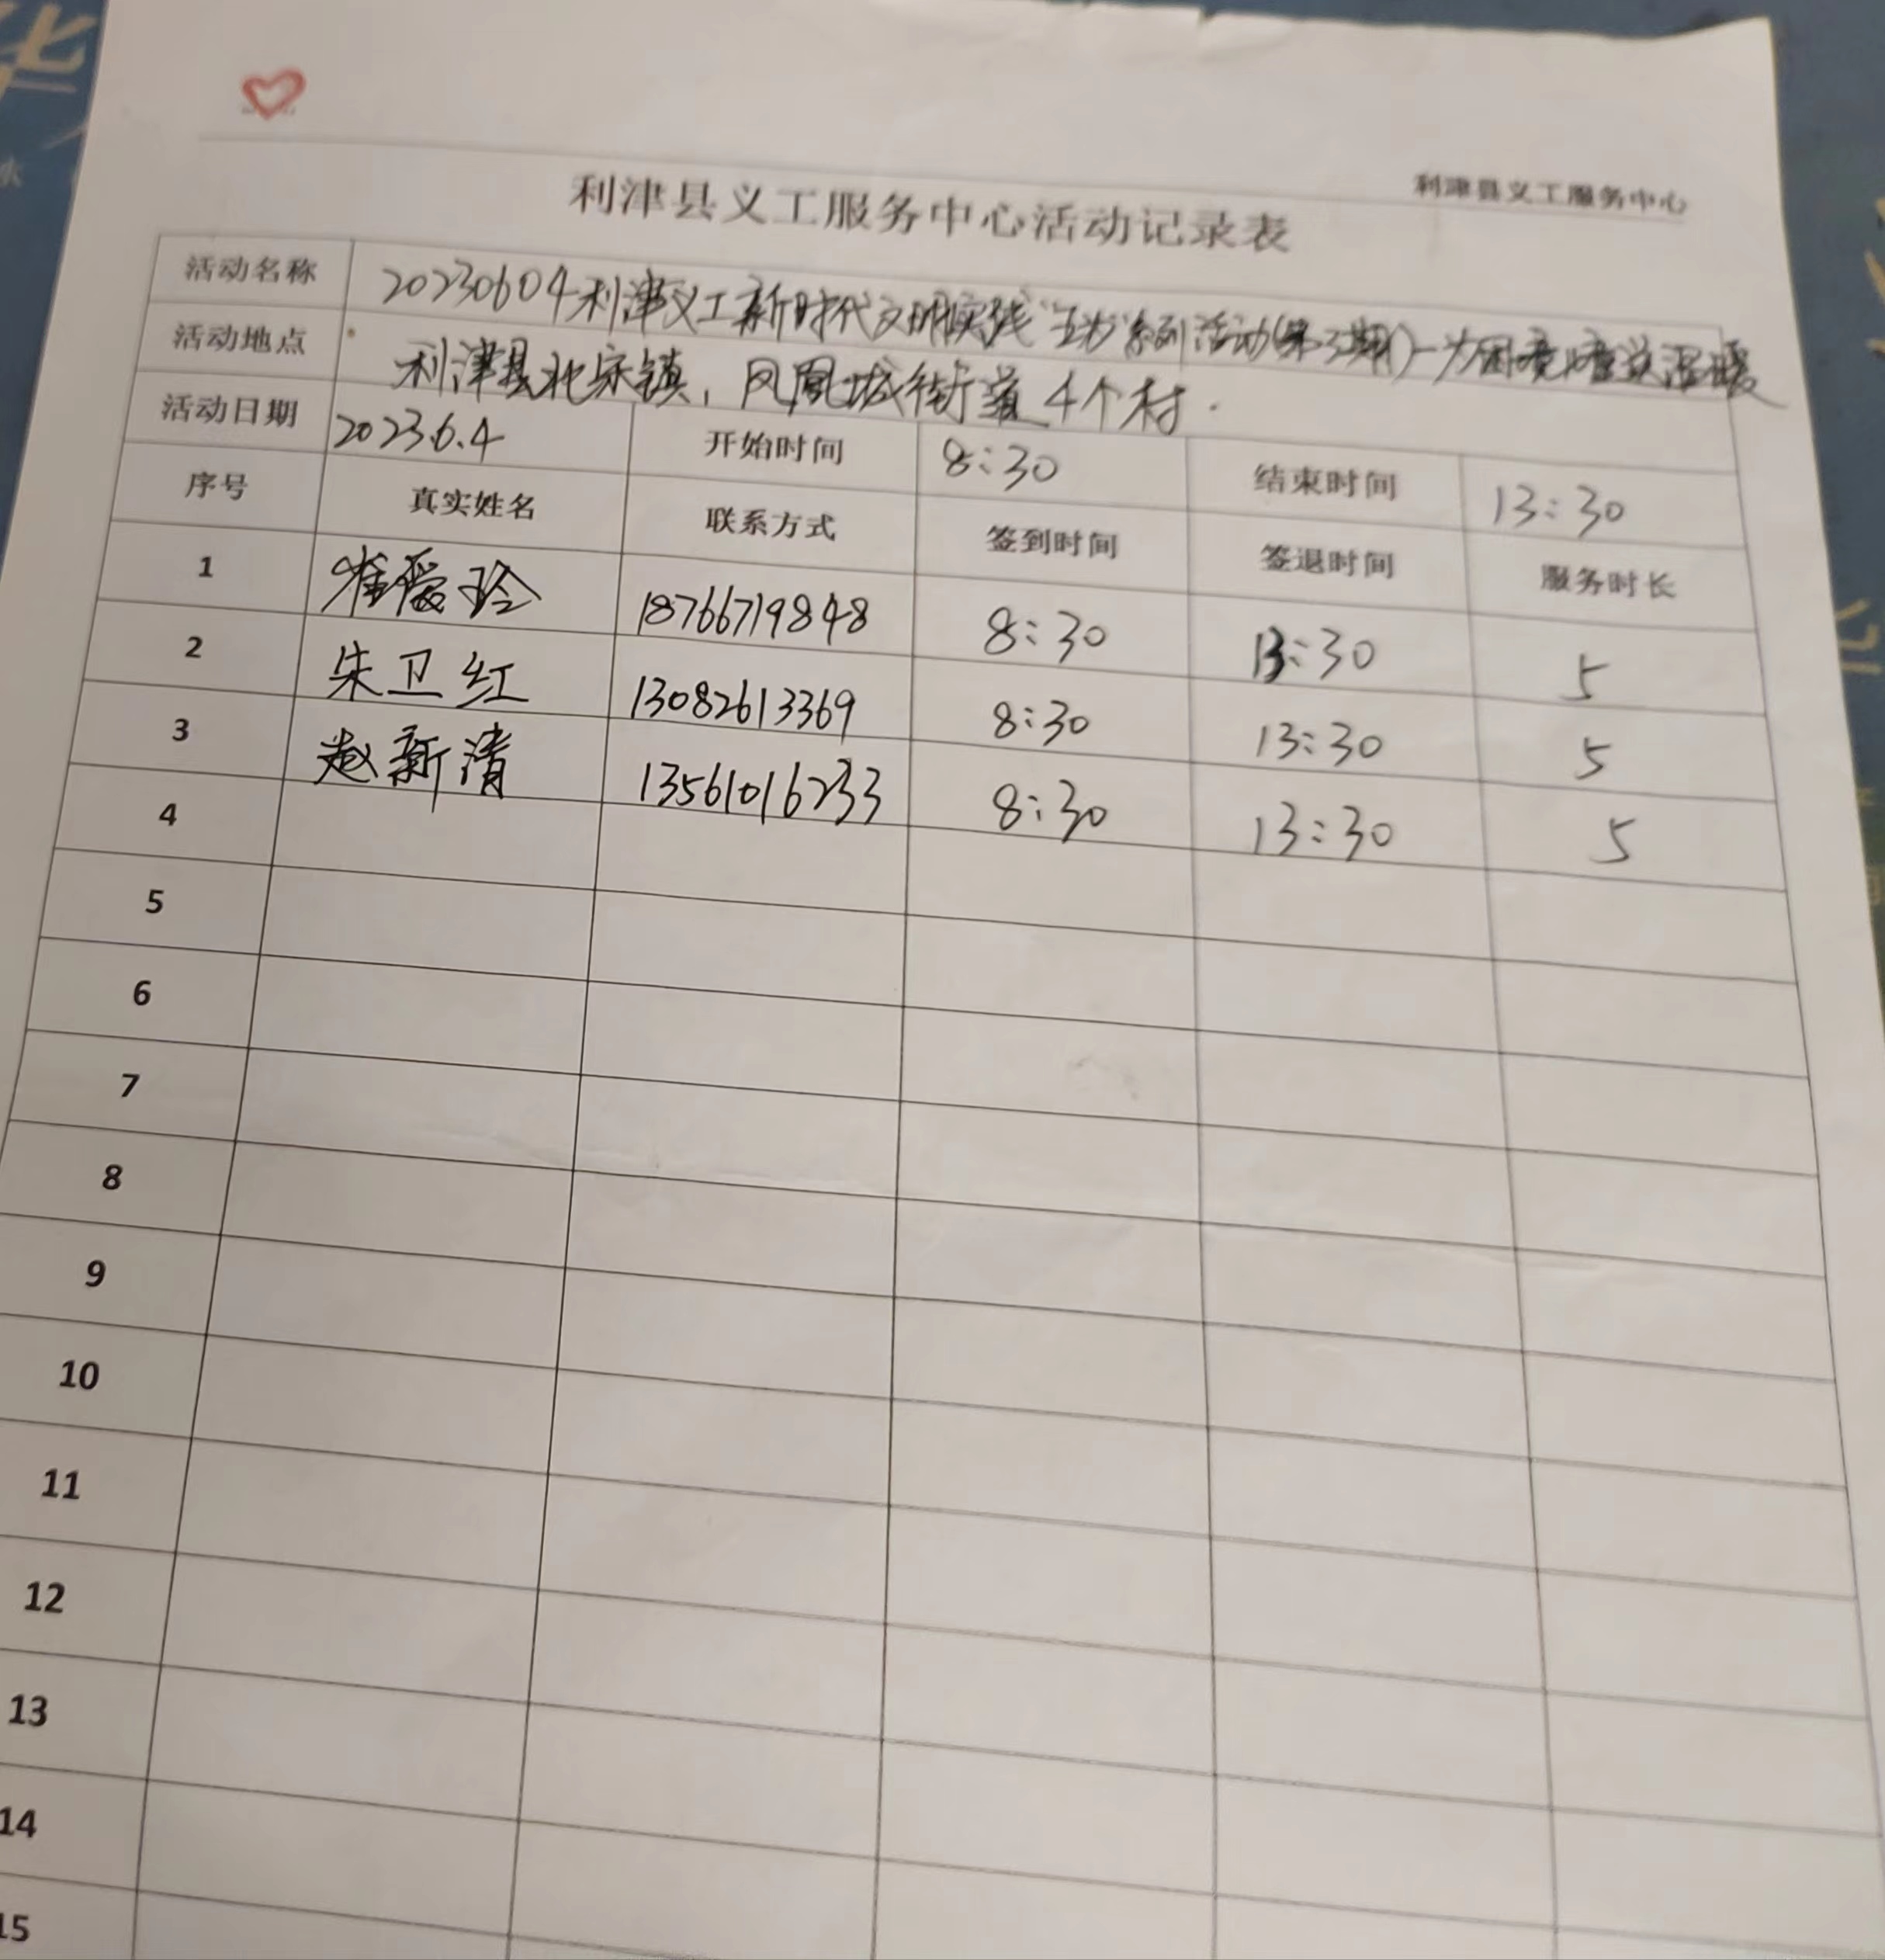 利津县义工服务中心
利津县义工服务中心活动记录表
活动名称 20230604利津义工新时代文明实践"五为"系列活动(第3期)-为困境儿童送温暖
活动地点 利津县北宋镇,凤凰城街道4个村.
活动日期 2023.6.4 开始时间 8:30 结束时间 13:30
序号 真实姓名 联系方式 签到时间 签退时间 服务时长
1 崔爱玲 18766719848 8:30 13:30 5
2 朱卫红 13082613369 8:30 13:30 5
3 赵新清 13561016233 8:30 13:30 5
4
5
6
7
8
9
10
11
12
13
14
15